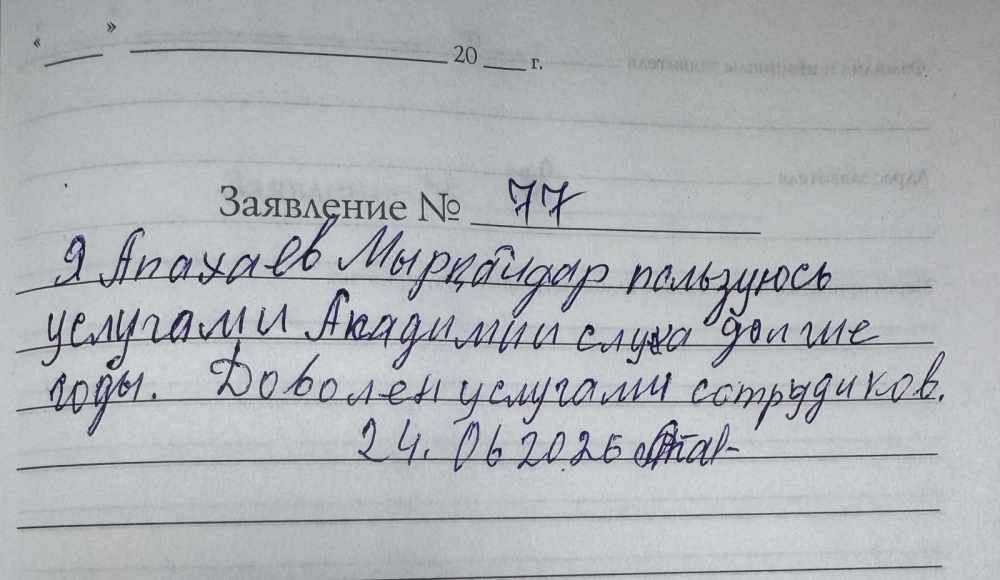 « ___ » ______________ 20 ___ г.
Заявление № 77
Я Апахаев Мырқайдар пользуюсь
услугами Акадимии слуха долгие
годы. Доволен услугами сотрудиков.
24. 06 2026